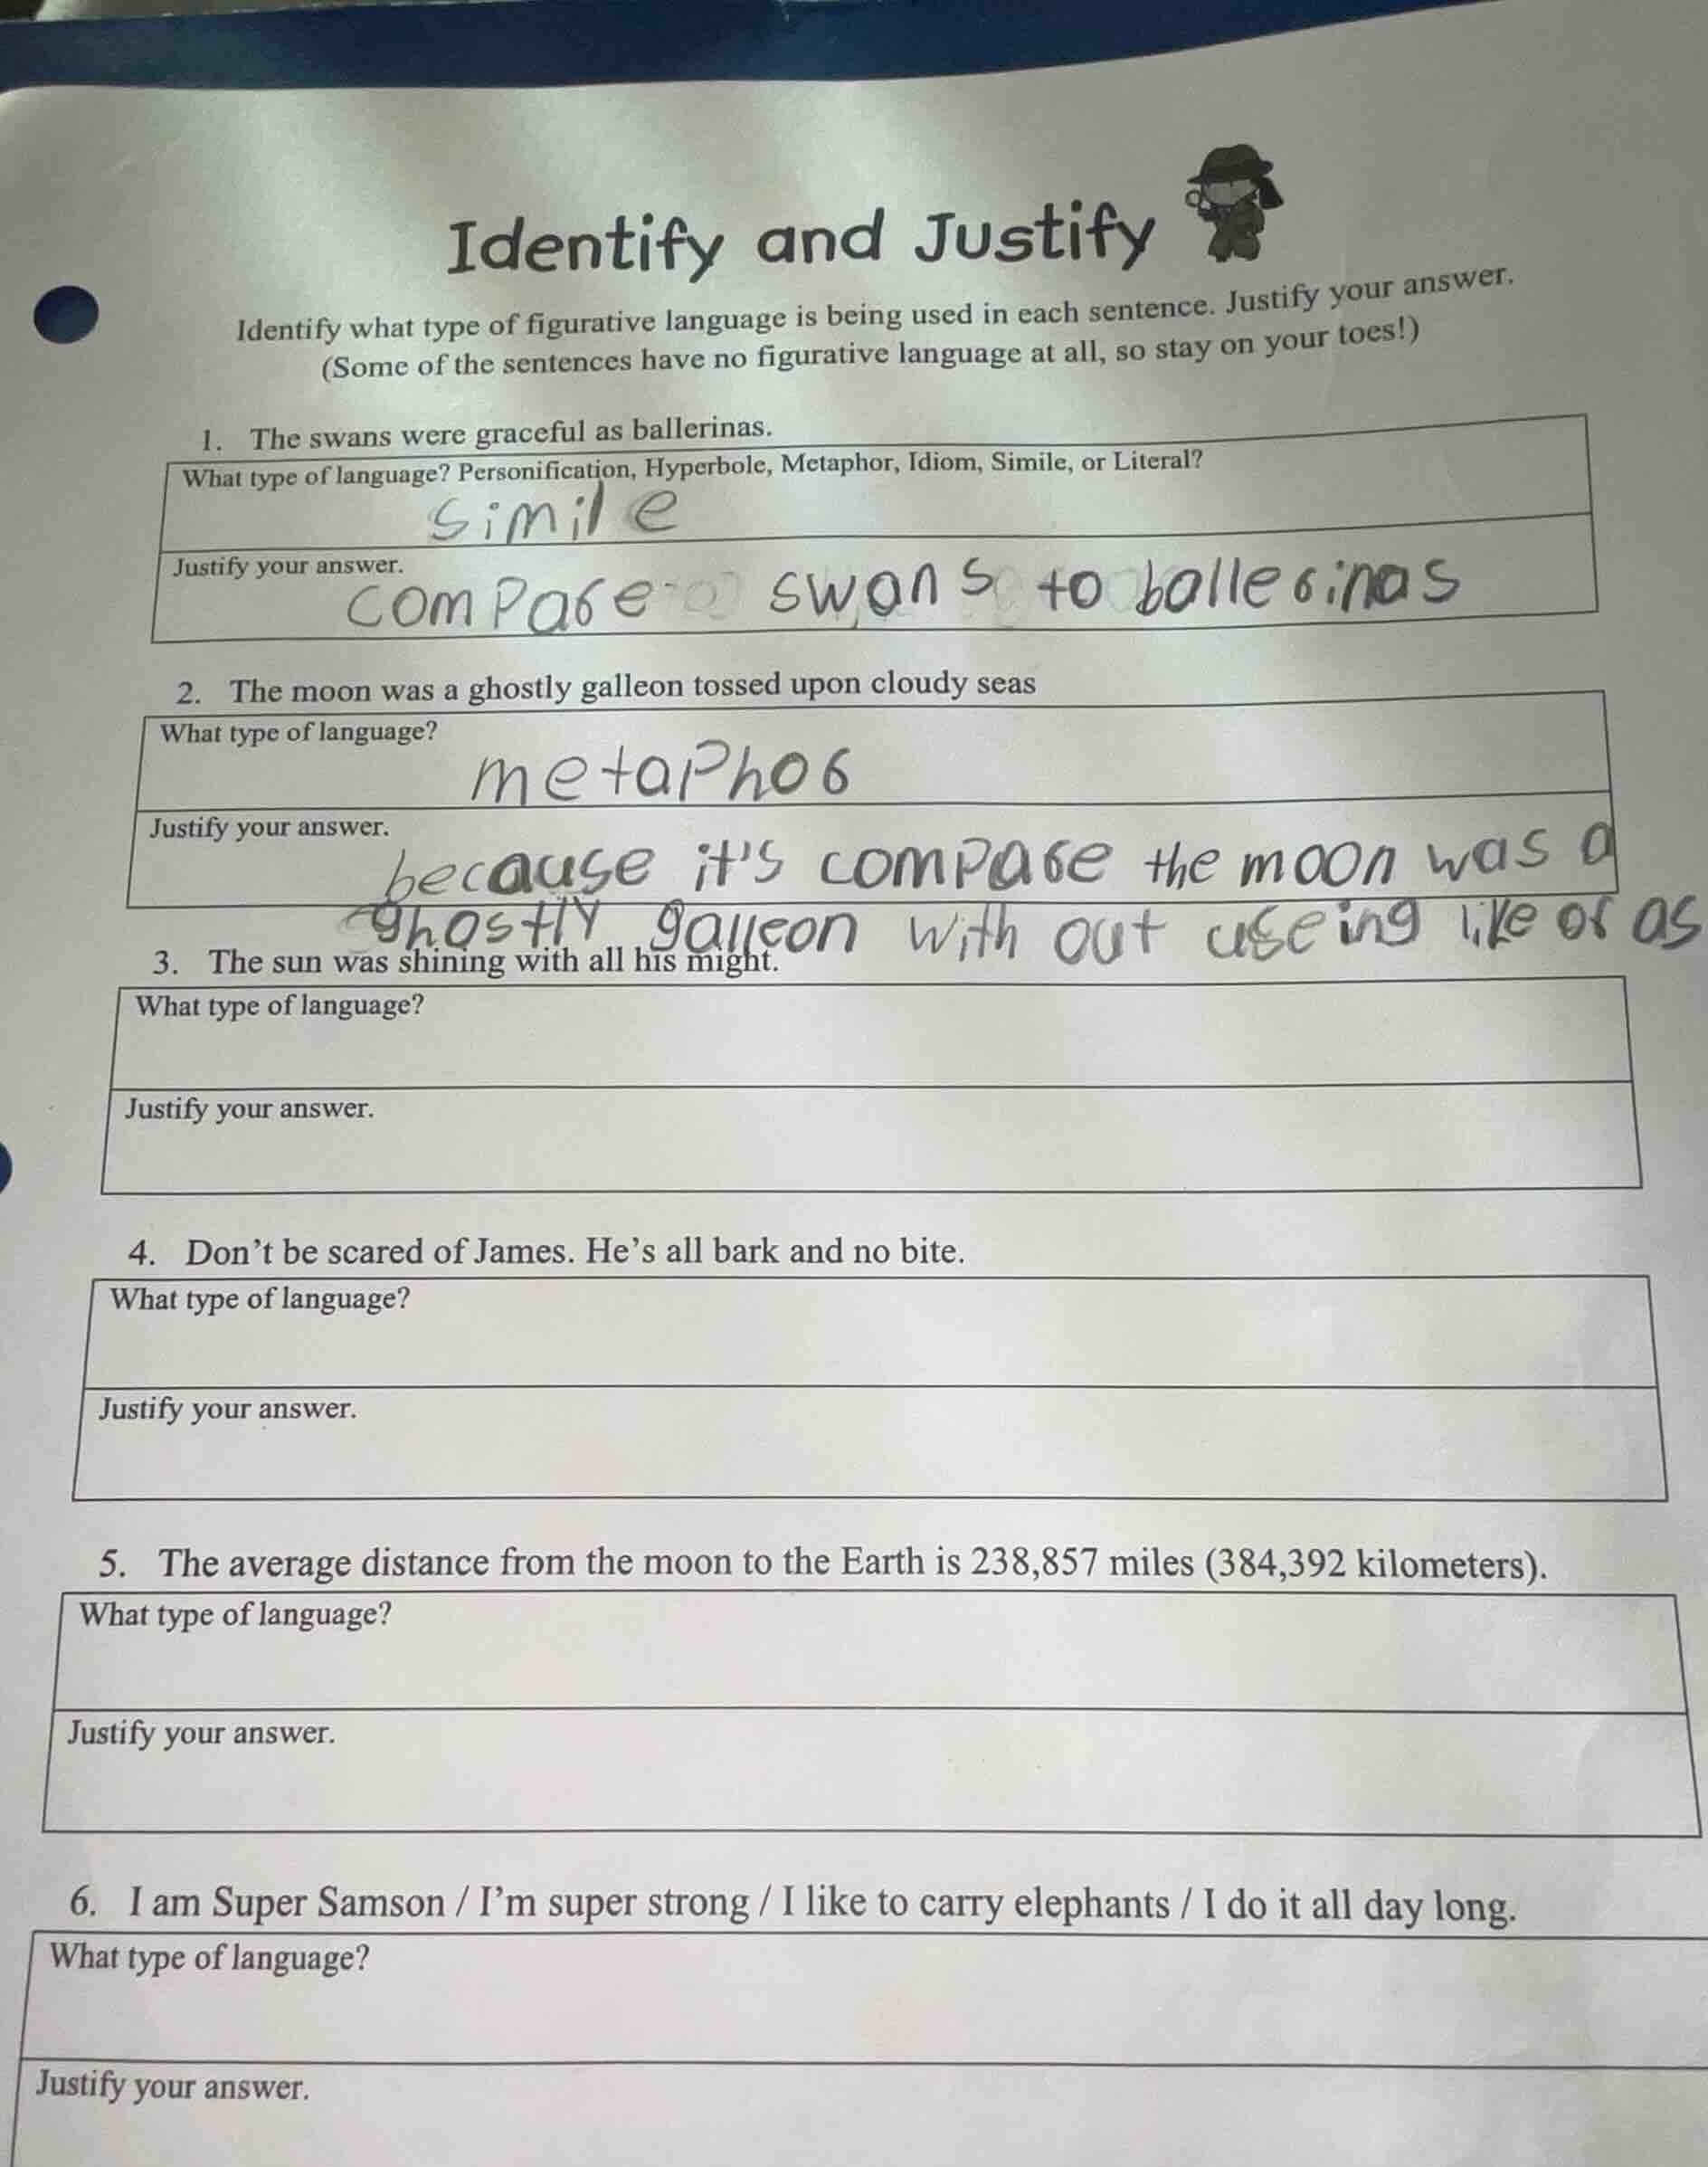 Identify and Justify
Identify what type of figurative language is being used in each sentence. Justify your answer.
(Some of the sentences have no figurative language at all, so stay on your toes!)
1. The swans were graceful as ballerinas.
What type of language? Personification, Hyperbole, Metaphor, Idiom, Simile, or Literal?
simile
Justify your answer.
compare swans to ballerinas
2. The moon was a ghostly galleon tossed upon cloudy seas
What type of language?
metaphor
Justify your answer.
because it's compare the moon was a
ghostly galleon with out useing like or as
3. The sun was shining with all his might.
What type of language?
Justify your answer.
4. Don't be scared of James. He's all bark and no bite.
What type of language?
Justify your answer.
5. The average distance from the moon to the Earth is 238,857 miles (384,392 kilometers).
What type of language?
Justify your answer.
6. I am Super Samson / I'm super strong / I like to carry elephants / I do it all day long.
What type of language?
Justify your answer.